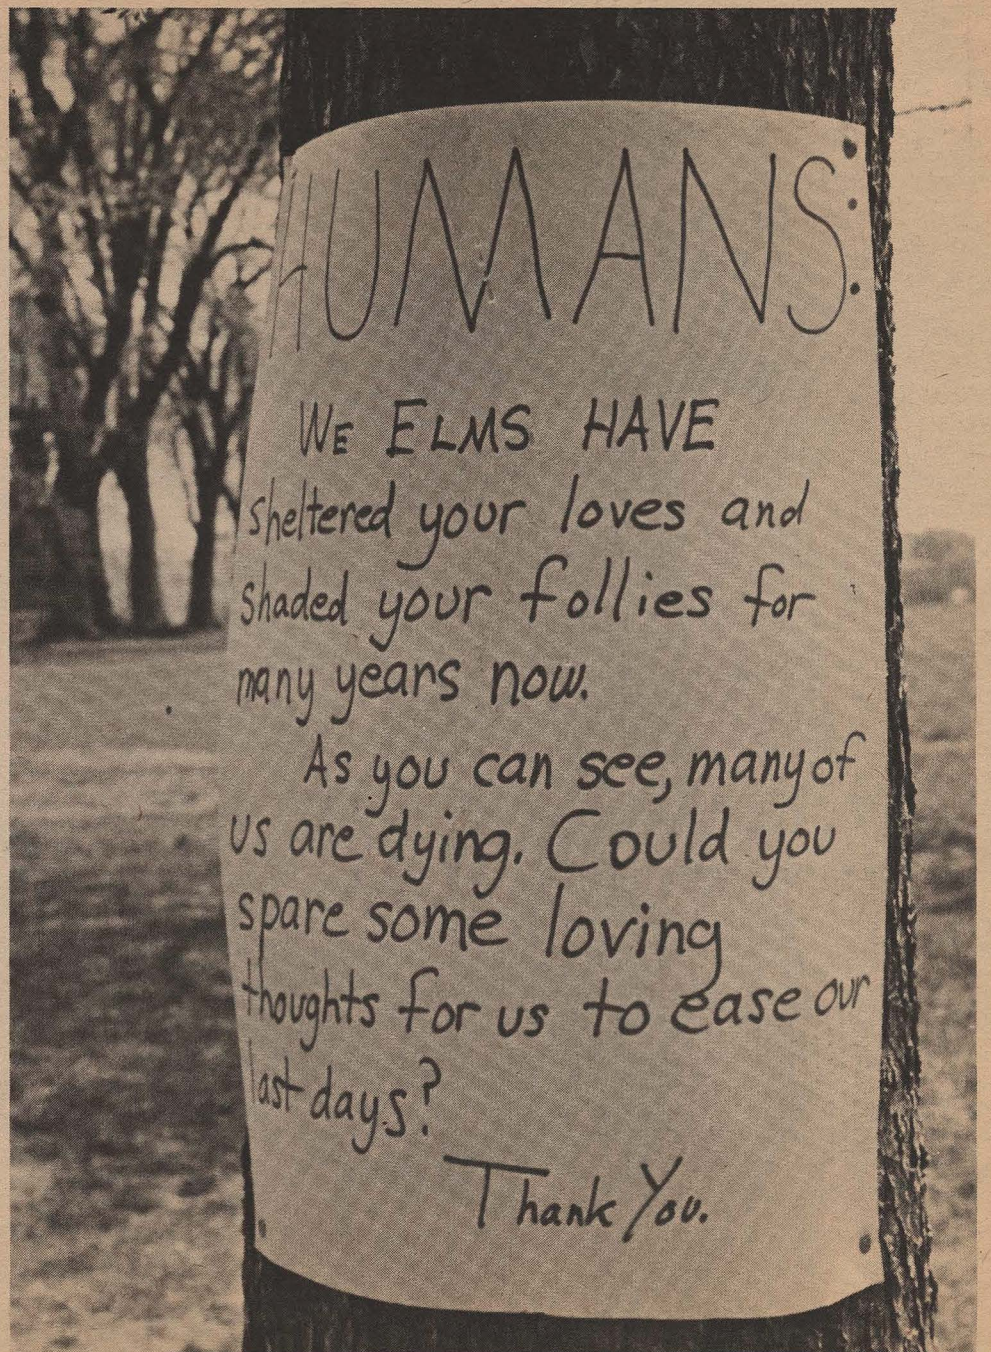 HUMANS:
WE ELMS HAVE
sheltered your loves and
shaded your follies for
many years now.
As you can see, many of
us are dying. Could you
spare some loving
thoughts for us to ease our
last days?
Thank You.